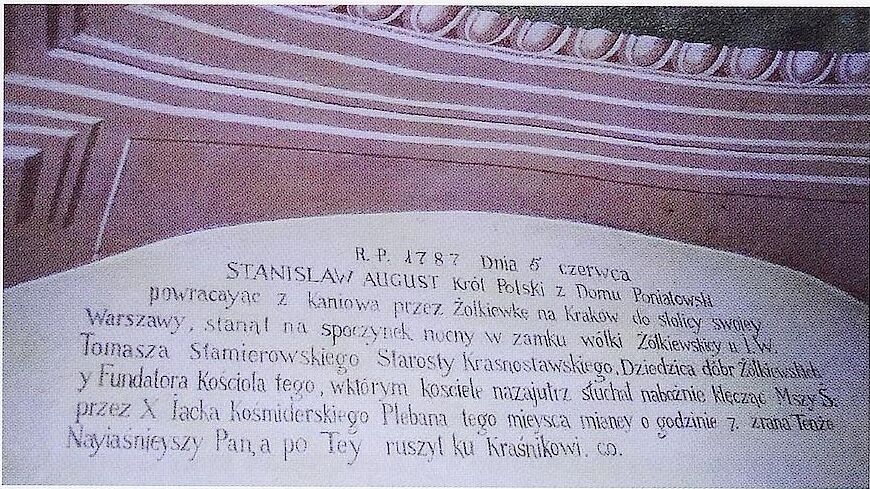 R. P. 1787 Dnia 5 czerwca
STANISLAW AUGUST Król Polski z Domu Poniatowski
powracayąc z kaniowa przez Żolkiewkę na Kraków do stolicy swoiey
Warszawy, stanął na spoczynek nocny w zamku wólki Żółkiewskiey u I.W.
Tomasza Stamierowskiego Starosty Krasnostawskiego, Dziedzica dóbr Żółkiewskich
y Fundatora Kościoła tego, wktórym kosciele nazajutrz słuchał nabożnie klęcząc Mszy S.
przez X Iacka Kosmiderskiego Plebana tego mieysca mianey o godzinie 7. zrana Tenże
Nayiaśnieyszy Pan, a po Tey ruszył ku Kraśnikowi. co.